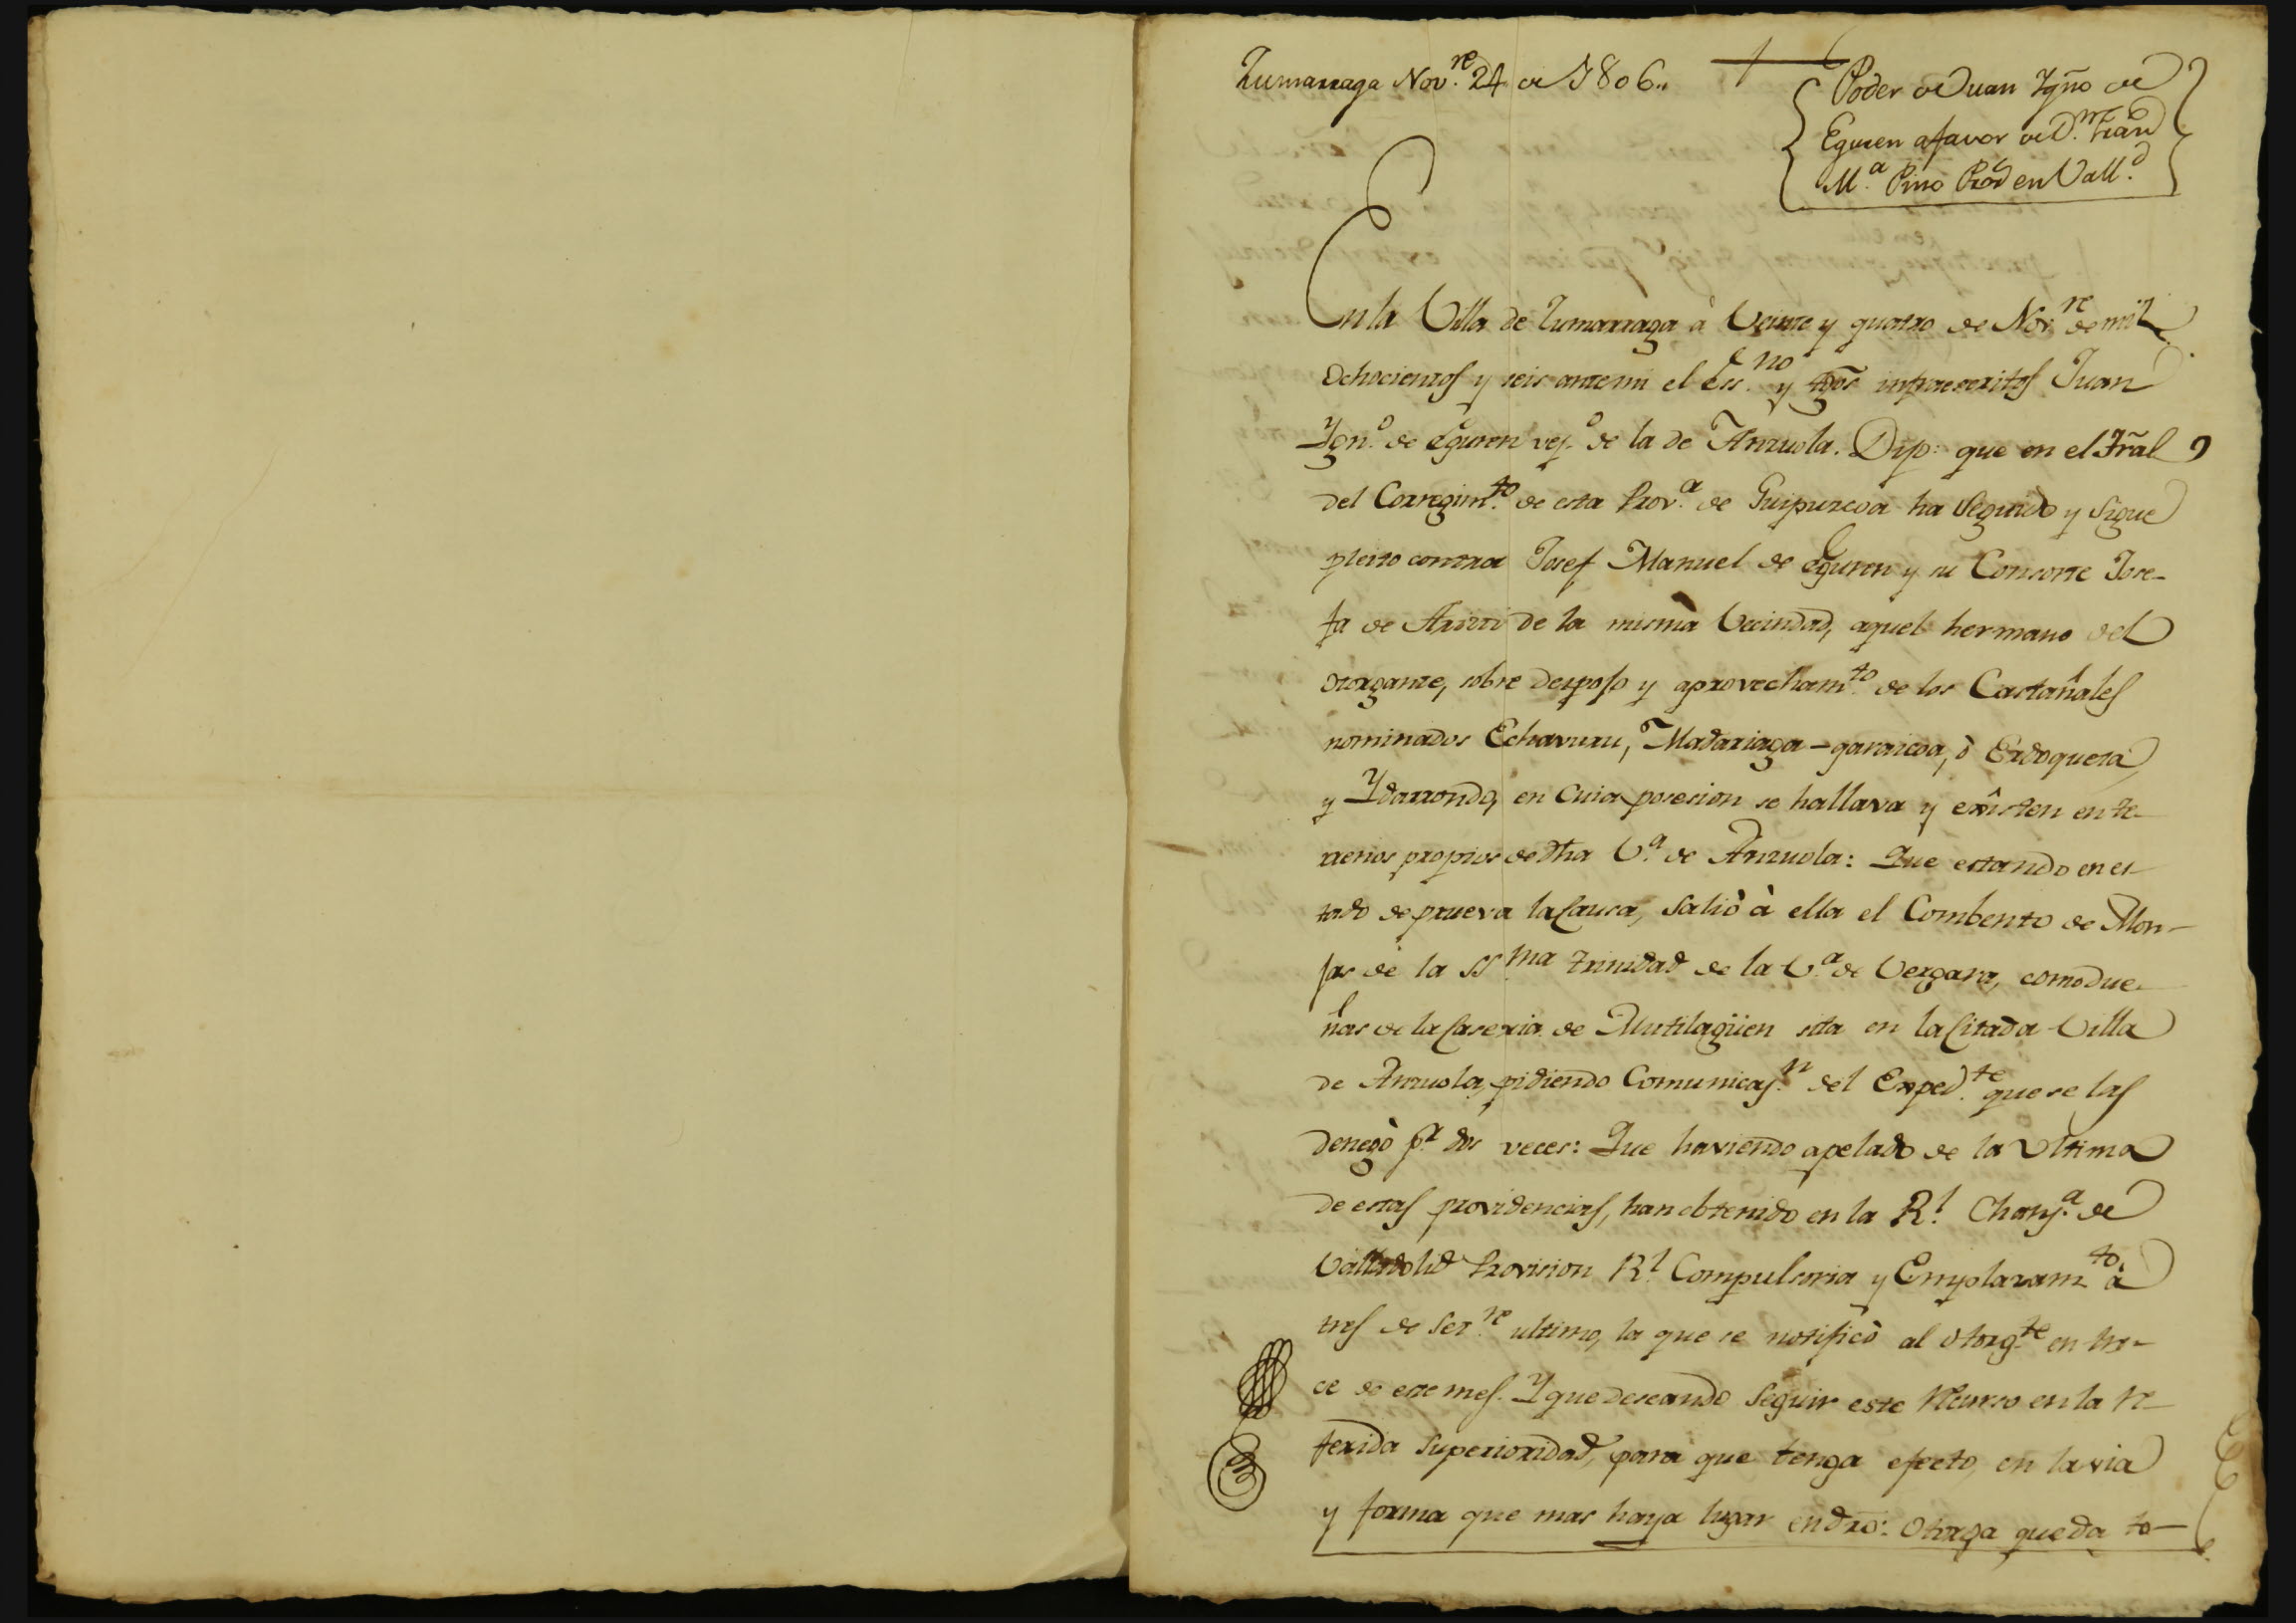 Zumarraga Nov.re 24 de 1806..
Poder de Juan Ygño de
Eguren afavor de D.n Fran.co
M.a Pino Pror en Vall.d
En la Villa de Zumarraga à Veinte y quatro de Nov.re de mil
Ochocientos y seis ante mi el Ess.no y tgos infraescritos Juan
Ygn.o de Eguren vez.o de la de Anzuola. Dijo: que en el Trãl
del Corregim.to de esta Prov.a de Guipuzcoa ha Seguido y Sigue
pleito contra Josef Manuel de Eguren y su Consorte Jose-
fa de Arizti de la misma Vecindad, aquel hermano del
otorgante, sobre despojo y aprovecham.to de los Castañales
nominados Echavuru, Madariaga-garaicoa, ò Erdoqueta
y Ydarrondo, en cuia posesion se hallava y exîsten en te-
rrenos propios de dha V.a de Anzuola: Que estando en es-
tado de prueva la Causa, Salió à ella el Combento de Mon-
jas de la SS.ma Trinidad de la V.a de Vergara, como due-
ñas de la Caseria de Mutilagüen sita en la Citada Villa
de Anzuola, pidiendo Comunicaz.n del Exped.te que se las
denegò p.r dos veces: Que haviendo apelado de la Ultima
de estas providencias, han obtenido en la R.l Chanz.a de
Valladolid Provision R.l Compulsoria y Emplazam.to à
tres de Set.re ultimo, la que se notificò al otorg.te en tre-
ce de este mes. Y que deseando Seguir este Recurso en la re-
ferida Superioridad, para que tenga efecto, en la via
y forma que mas haya lugar en dro: Otorga que da to-